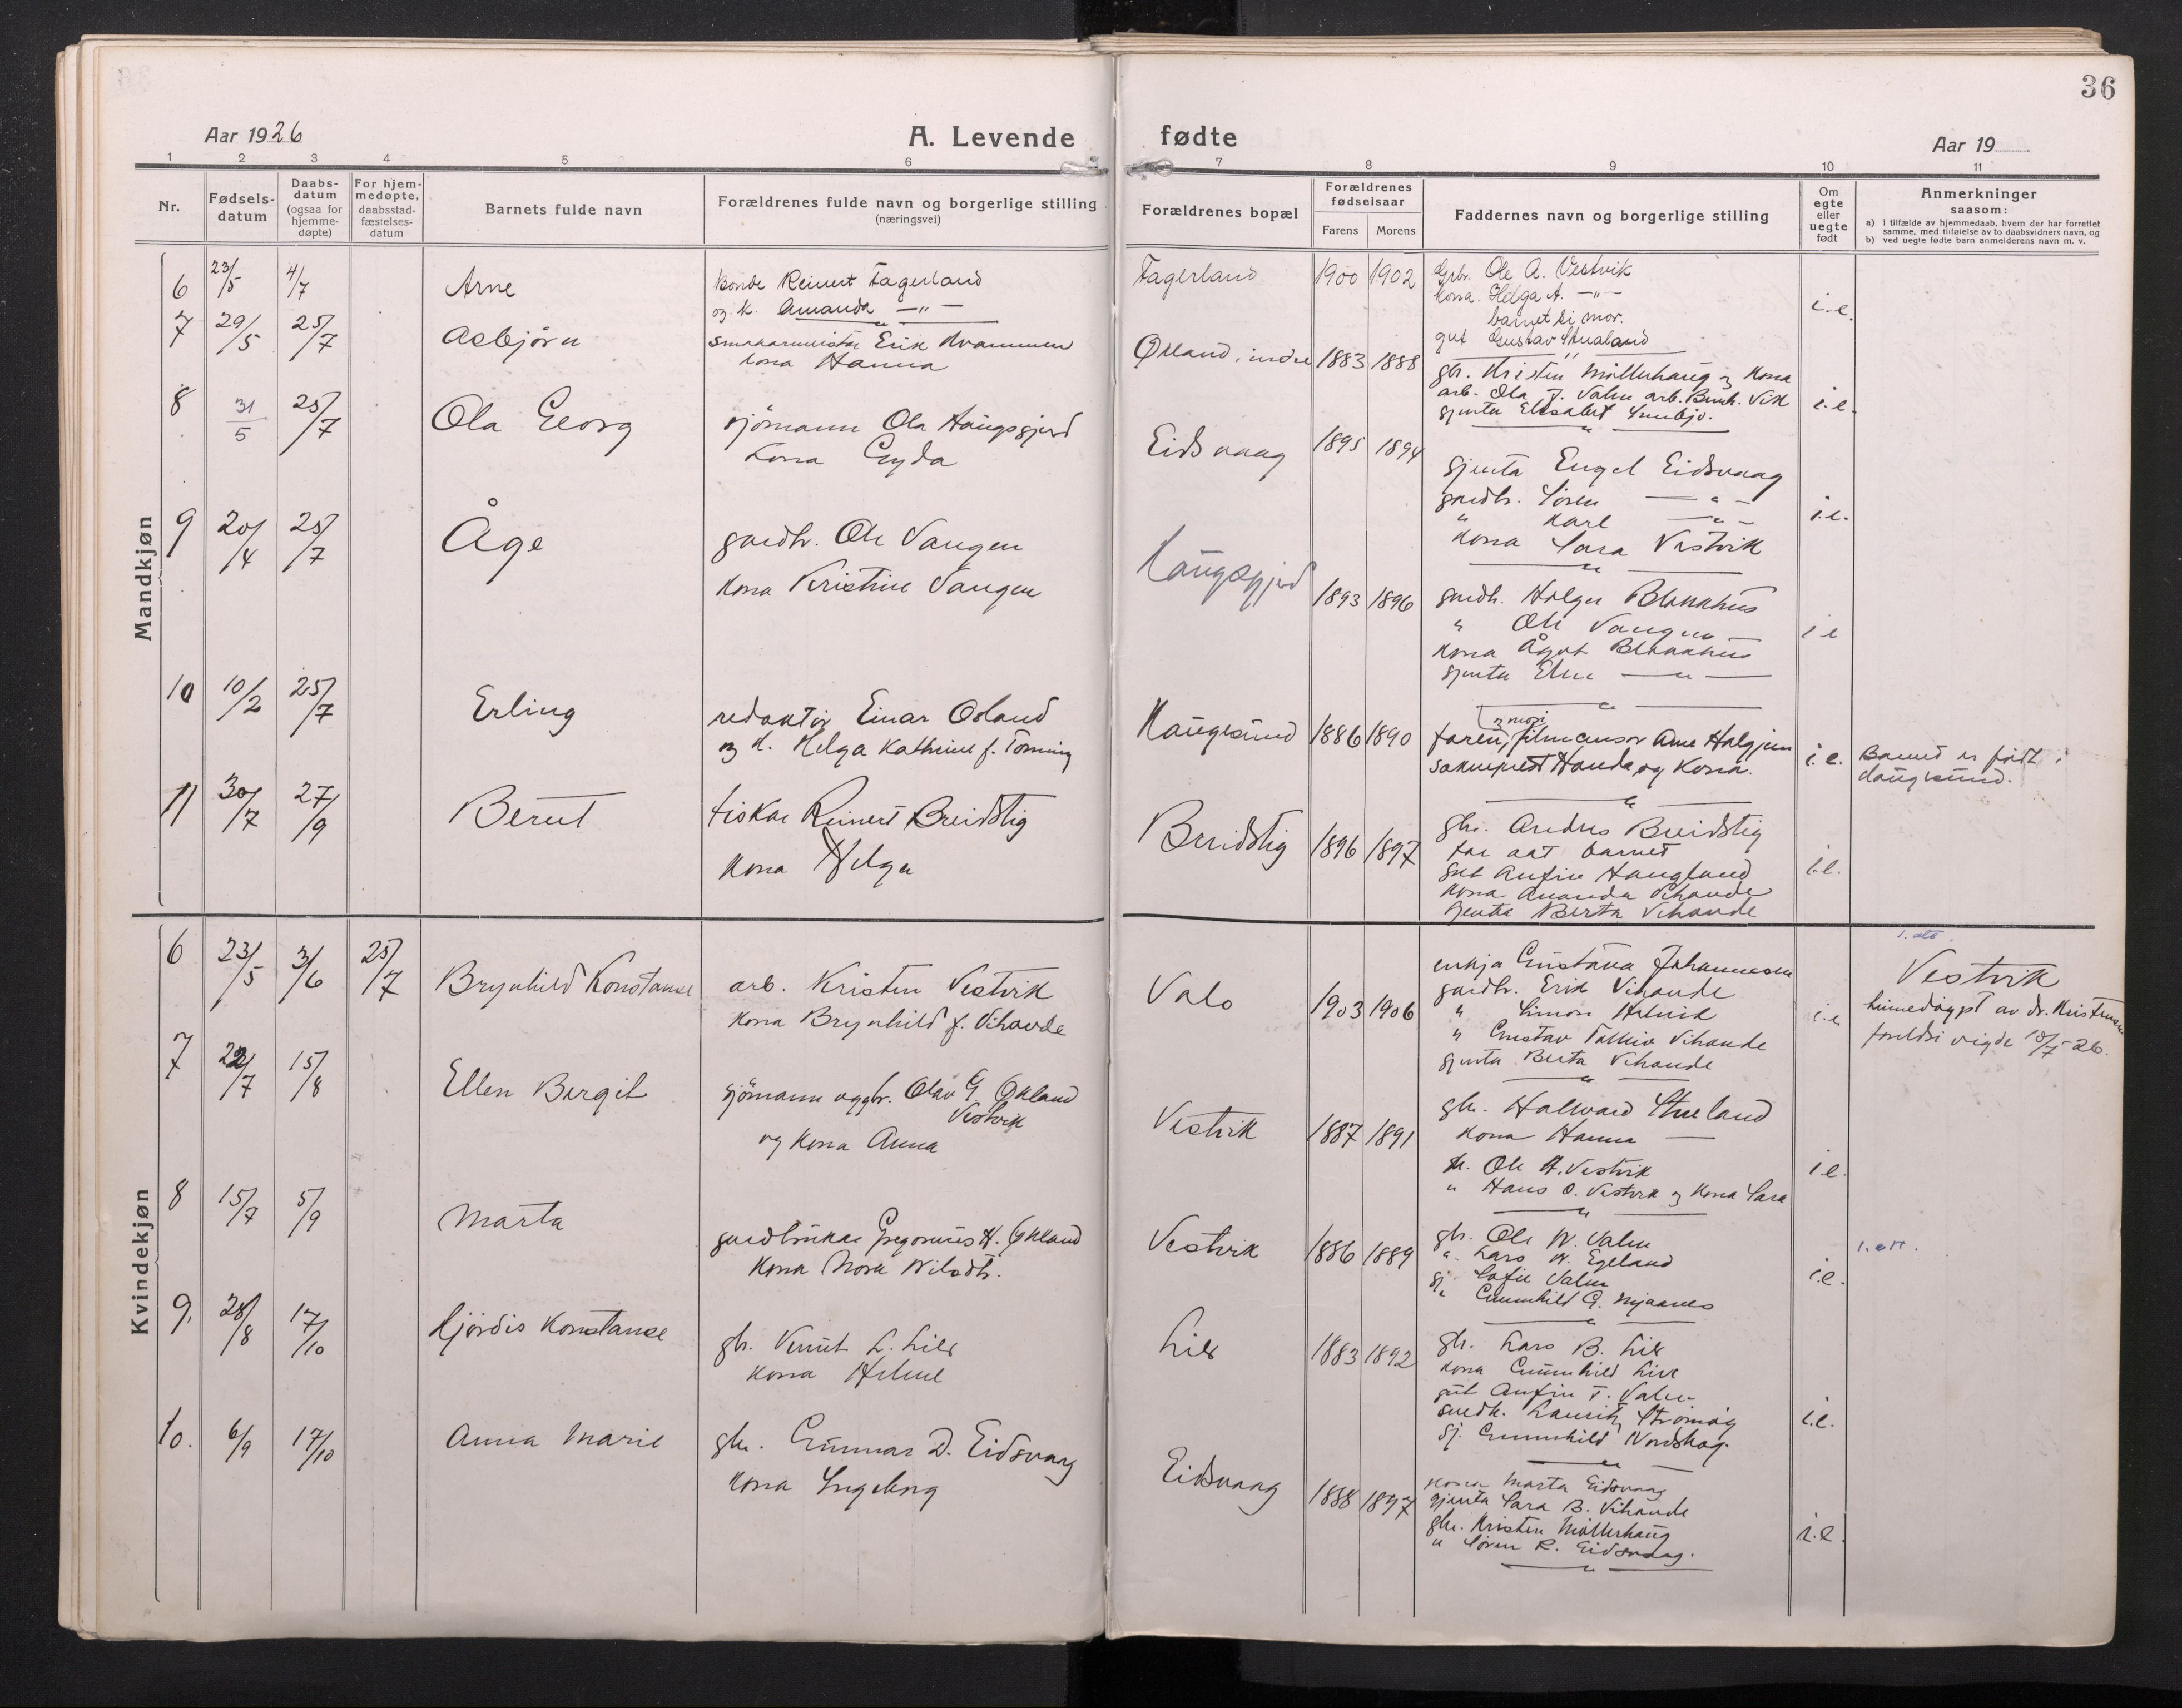 36
Aar 1926
A. Levende fødte
Aar 19
1 2 3 4 5 6 7 8 9 10 11
Nr.
Fødsels-
datum
Daabs-
datum
(ogsaa for
hjemme-
døpte)
For hjem-
medøpte,
daabsstad-
fæstelses-
datum
Barnets fulde navn
Forældrenes fulde navn og borgerlige stilling
(næringsvei)
Forældrenes bopæl
Forældrenes
fødselsaar
Farens Morens
Faddernes navn og borgerlige stilling
Om
egte
eller
uegte
født
Anmerkninger
saasom:
a) i tilfælde av hjemmedaab, hvem der har forrettet
samme, med tilføielse av to daabsvidners navn, og
b) ved uegte fødte barn anmelderens navn m. v.
Mandkjøn
6 23/5 4/7 Arne
bonde Reinert Fagerland
og k. Amanda -"-
Fagerland 1900 1902
Ole A. Vestvik
kona Helga A. -"-
barnet si mor.
gut Gustav Stualand
i.e.
7 29/5 25/7 Asbjørn
Erik Kvammen
kona Hanna
Økland, indre 1883 1888
gbr. Kristen Møllerhaug og kona
arb. Ola J. Valen arb. Vik
gjenta Elisabet
i.e.
8 31/5 25/7 Ola Georg
sjömann Ola Haugsgjerd
kona Gyda
Eidsvaag 1895 1894
gjenta Engel Eidsvaag
gardbr. Sören -"-
" Karl -"-
kona Sara Vestvik
i.e.
9 20/4 25/7 Åge
gardbr. Ole Vangen
kona Kristine Vangen
Haugsgjerd 1893 1896
gardb. Holger Blakkhus
" Ole Vangen
kona Ågot Blakkhus
gjenta Else -"-
i e
10 10/2 25/7 Erling
redaktör Einar Osland
og k. Helga Kathrine f. Tönning
Haugesund 1886 1890
og mori
faren, filmcensor Arne Halgjem
sokneprest Hande og kona.
i.e.
Barnet er födt i
Haugesund.
11 30/7 27/9 Berut
fiskar Reinert Breidstig
kona Helga
Breidstig 1896 1897
gbr. Andres Breidstig
far aat barnet
gut Anfin Haugland
kona Amanda Vihovde
gjenta Berta Vihovde
i.e.
Kvindekjøn
6 23/5 3/6 25/7 Brynhild Konstanse
arb. Kristen Vestvik
kona Brynhild f. Vihovde
Valo 1903 1906
enkja Gustava Johannesen
gardbr. Erik Vihovde
" Simon
" Gustav Vihovde
gjenta Berta Vihovde
i.e.
Vestvik
heimedöypt av dr. Kristensen
foreldri vigde 10/7-26.
7 22/7 15/8 Ellen Bergit
sjömann og gbr. Olav G Økland
Vestvik
og kona Anna
Vestvik 1887 1891
gbr. Halvard Stueland
kona Hanna -
Ole A. Vestvik
" Hans O. Vestvik og kona Sara
i.e.
8 15/7 5/9 Marta
gardbrukar Gregorius H. Økland
kona Nora Nilsdtr.
Vestvik 1886 1889
gbr. Ole W. Valen
" Lars W. Egeland
gj. Sofie Valen
" Gunnhild G. Mjaanes
i.e.
9. 28/8 17/10 Hjördis Konstanse
gbr. Knut L. Lie
kona Helene
Lie 1883 1892
gbr. Lars B. Lie
kona Gunnhild Lie
gut Anfin T. Valen
Lauritz Strömöy
gj. Gunnhild Nordskog.
i.e.
10. 6/9 17/10 Anna Marie
gbr. Gunnar D. Eidsvaag
kona Ingeborg
Eidsvaag 1888 1897
kona Marta Eidsvaag
gjenta Sara B. Vihovde
gbr. Kristen Møllerhaug
" Sören R. Eidsvaag.
i.e.